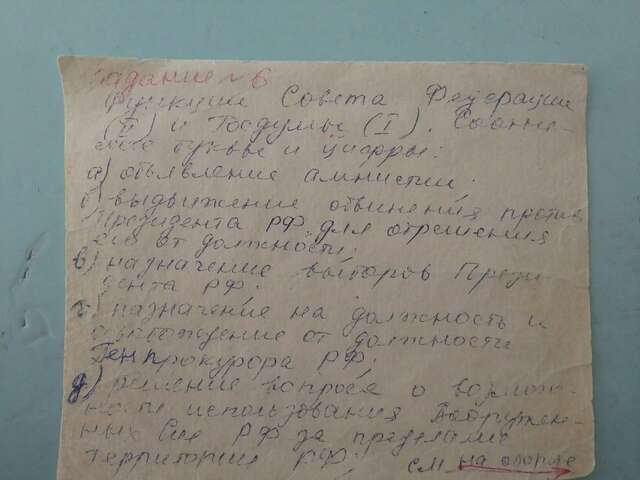 Задание №6
Функции Совета Федерации
(II) и Госдумы (I). Соотне-
сите буквы и цифры:
а) объявление амнистии;
б) выдвижение обвинения против
Президента РФ для отрешения
его от должности;
в) назначение выборов Прези-
дента РФ;
г) назначение на должность и
освобождение от должности
Генпрокурора РФ;
д) решение вопроса о возмож-
ности использования Вооружен-
ных Сил РФ за пределами
территории РФ.
см на обороте